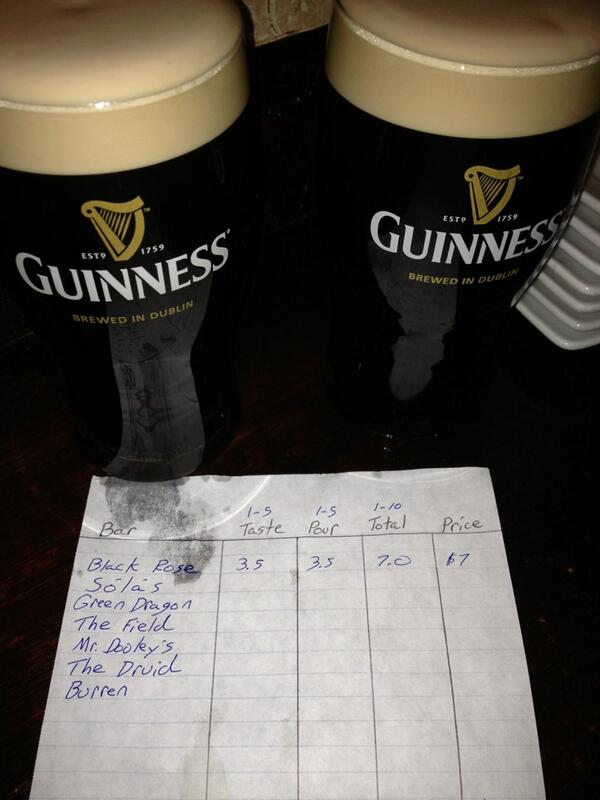 ESTD 1759
GUINNESS
BREWED IN DUBLIN
ESTD 1759
GUINNESS
BREWED IN DUBLIN
1-5 1-5 1-10
Bar Taste Pour Total Price
Black Rose 3.5 3.5 7.0 $7
Sólás
Green Dragon
The Field
Mr. Dooley's
The Druid
Burren